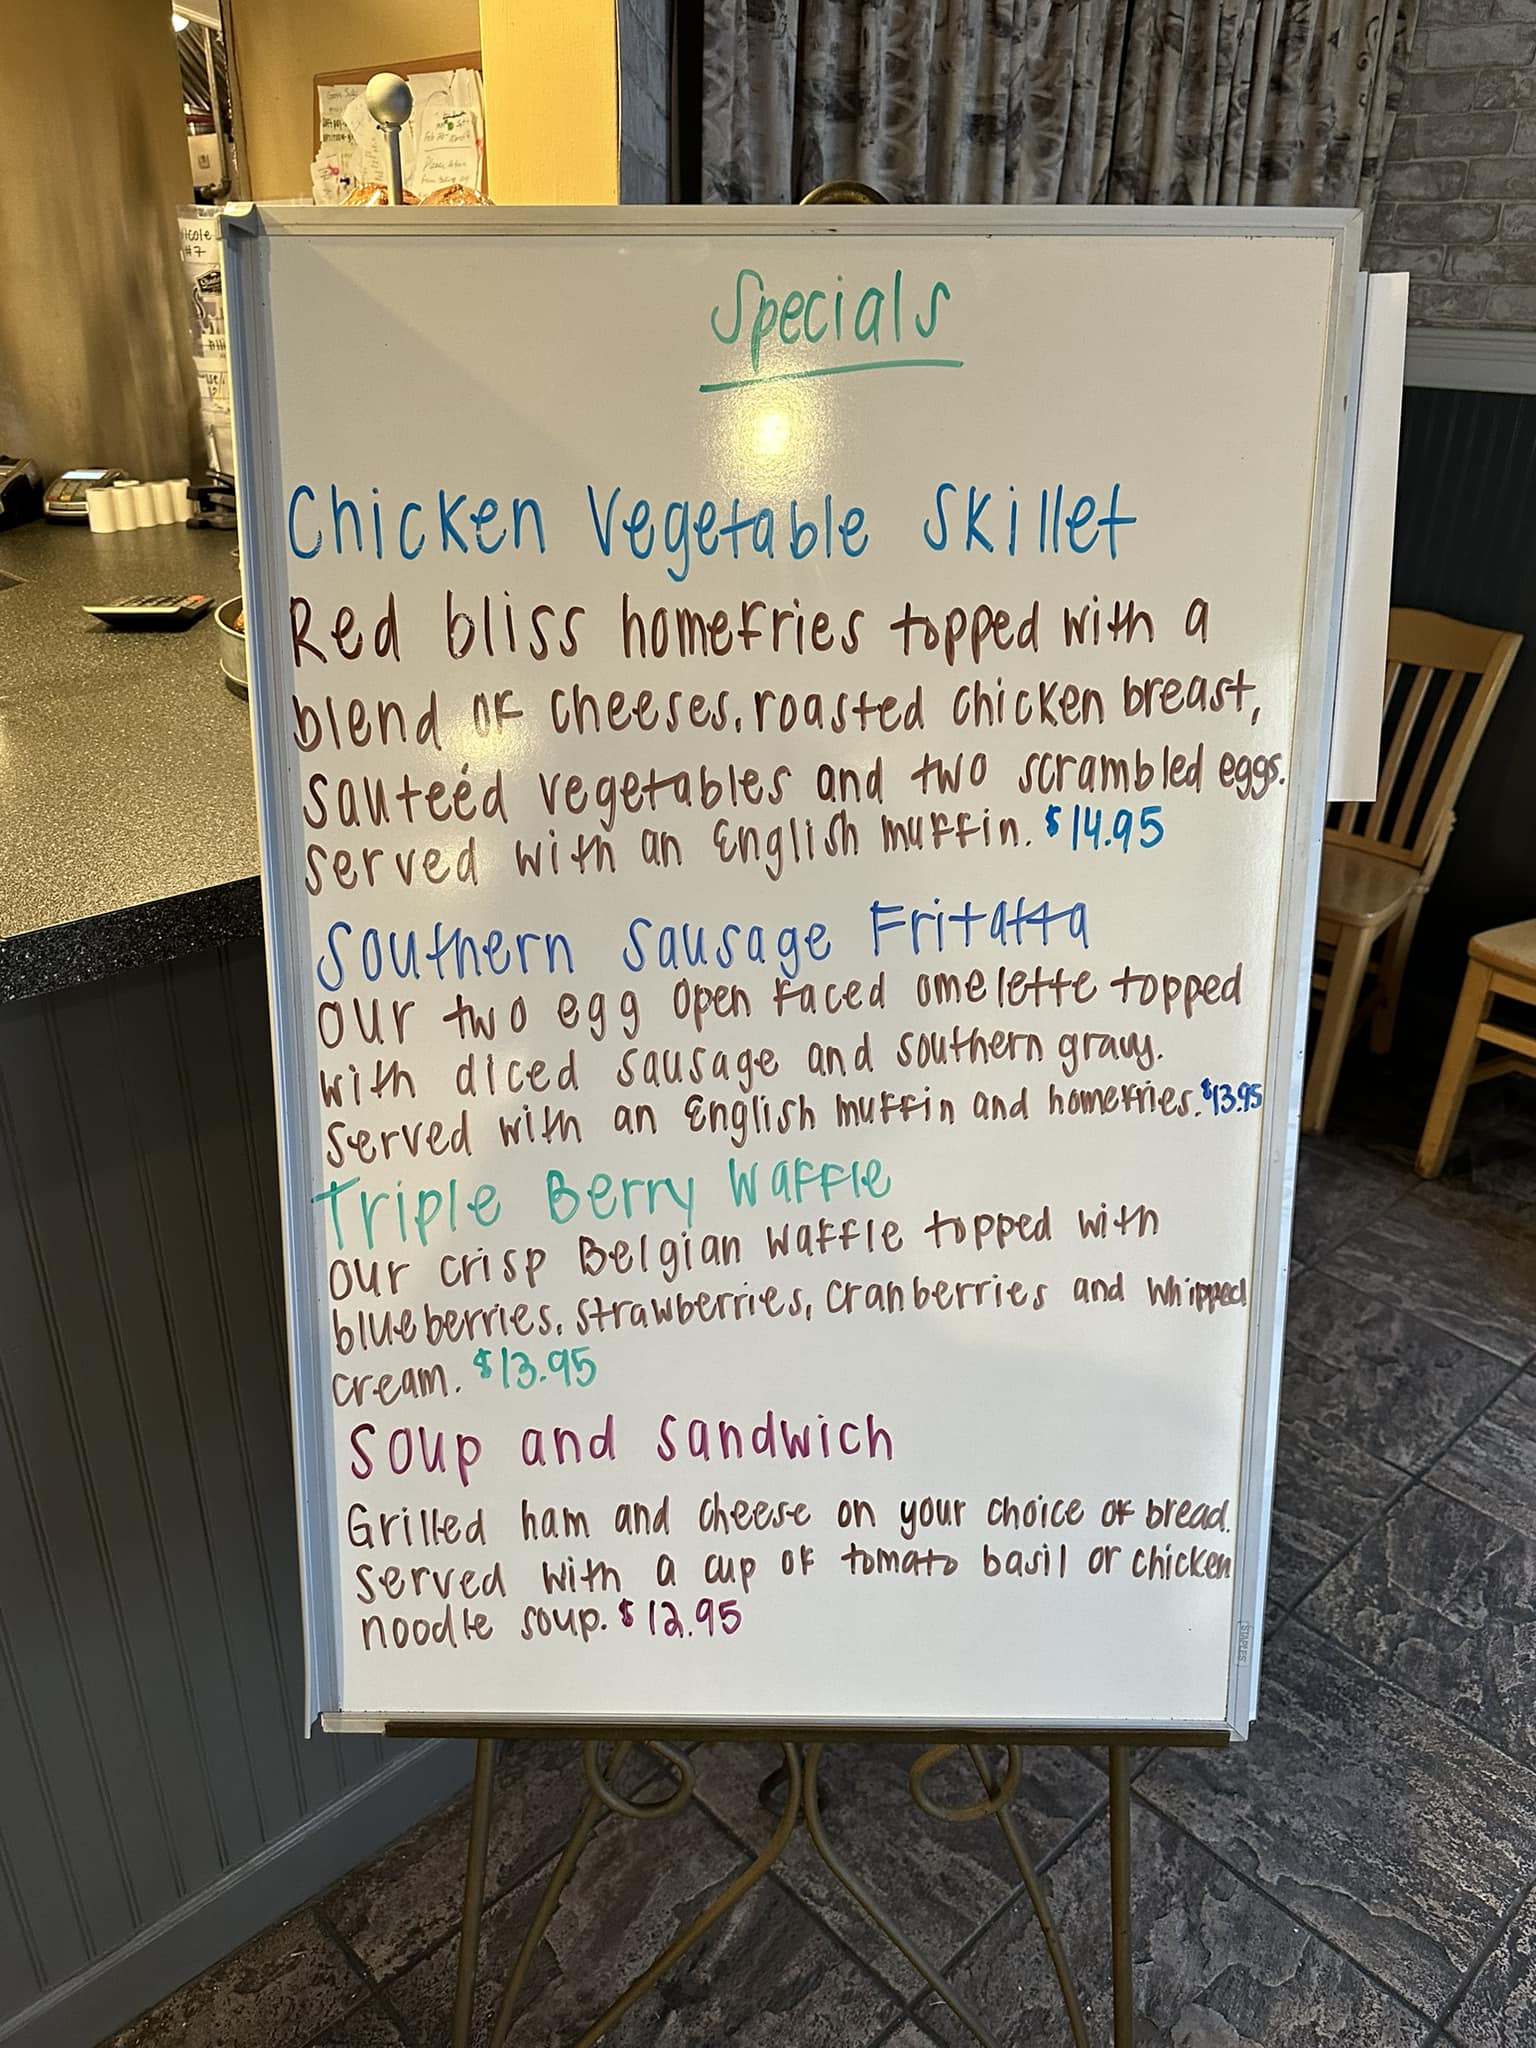 Specials
Chicken Vegetable Skillet
Red bliss homefries topped with a
blend of cheeses, roasted chicken breast,
sauteéd vegetables and two scrambled eggs.
Served with an English muffin. $14.95
Southern Sausage Fritatta
Our two egg open faced omelette topped
with diced sausage and southern gravy.
Served with an English muffin and homefries. $13.95
Triple Berry Waffle
Our crisp Belgian waffle topped with
blueberries, strawberries, cranberries and whipped
cream. $13.95
Soup and Sandwich
Grilled ham and cheese on your choice of bread.
Served with a cup of tomato basil or chicken
noodle soup. $12.95
STAPLES
#7